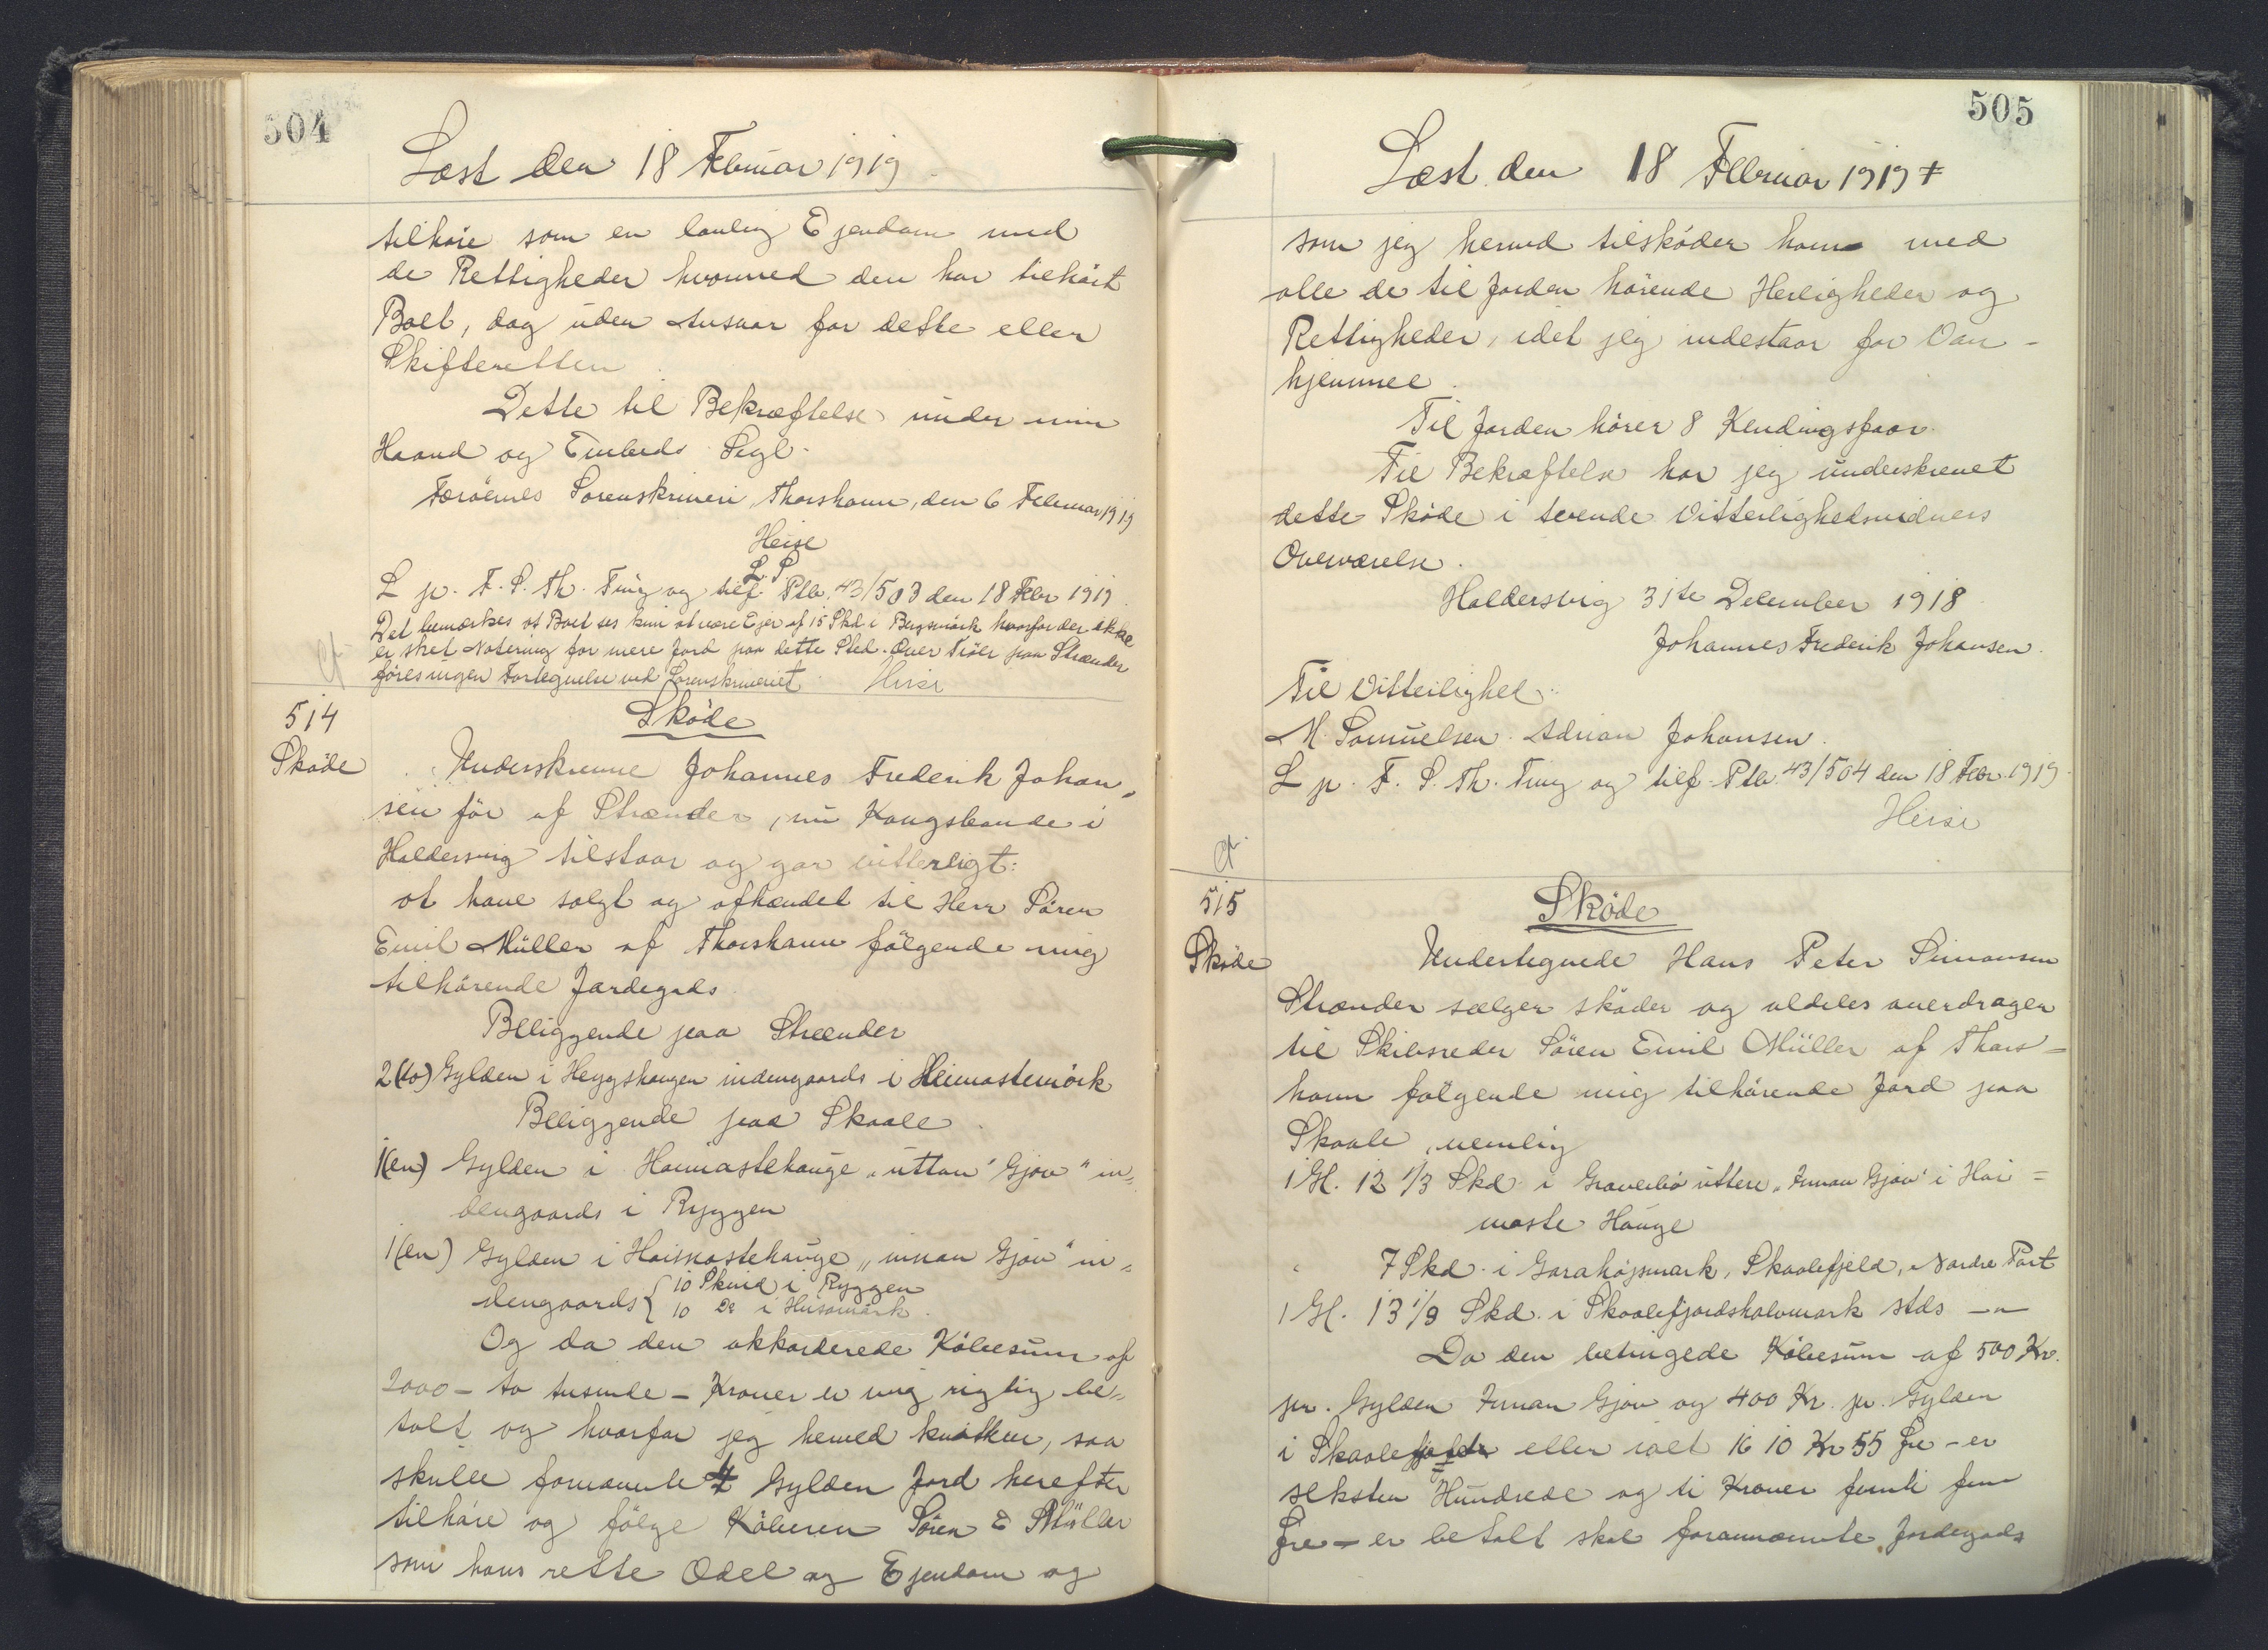 504
Læst den 18 Februar 1919.
tilhøre som en lovlig Ejendom med
de Rettigheder hvormed den har tilhört
Boet, dog uden Ansvar for dette eller
Skifteretten.
Dette til Bekræftelse under min
Haand og Embeds Segl.
Færöernes Sorenskriveri, Thorshavn, den 6 Februar 1919
Heise
L. S.
L p. F. S. Th. Ting og tilf. Ptb. 43/503 den 18 Febr 1919
Det bemærkes at Boet ses kun at være Ejer af 15 Skd i Bugsmörk hvorfor der ikke
er sket Notering for mere Jord paa dette Sted. Over Tróer paa Strænder
föres ingen Fortegnelse ved Sorenskriveriet. Heise
cf
514
Sköde
Sköde
Underskrevne Johannes Frederik Johan„
sen för af Strænder, nu Kongsbonde i
Haldersvig tilstaar og gør vitterligt:
at have solgt og afhændet til Herr Sören
Emil Müller af Thorshavn fölgende mig
tilhörende Jordegods
Beliggende paa Strænder
2(to) Gylden i Heygshaugen indengaards i Heimastemörk
Beliggende paa Skaale.
1(en) Gylden i Haimastehauge „uttan Gjov" in„
dengaards i Ryggen
1(en) Gylden i Haimastehauge „innan Gjov" in„
dengaards { 10 Skind i Ryggen
10 Do i Húsamörk.
Og da den akkorderede Köbesum af
2000 - to tusinde - Kroner er mig rigtig be„
talt og hvorfor jeg herved kvitterer, saa
skulle fornævnte 4 Gylden Jord herefter
tilhöre og fölge Köberen Sören E Müller
som hans rette Odel og Ejendom og
505
Læst den 18 Februar 1919 +
som jeg herved tilsköder ham med
alle de til Jorden hörende Herligheder og
Rettigheder, idet jeg indestaar for Van-
hjemmel.
Til Jorden hörer 8 Kendingsfaar.
Til Bekræftelse har jeg underskrevet
dette Sköde i tvende Vitterlighedsvidners
Overværelse.
Haldersvig 31te December 1918
Johannes Frederik Johansen.
Til Vitterlighed:
M. Samuelsen. Adrian Johansen.
L p. F. S. Th. Ting og tilf. Ptb. 43/504 den 18 Febr. 1919.
Heise
cf
515
Sköde
Sköde
Undertegnede Hans Peter Simonsen
Strænder sælger sköder og aldeles overdrager
til Skibsreder Sören Emil Müller af Thors=
havn fölgende mig tilhörende Jord paa
Skaale, nemlig
1 Gl. 12 1/3 Skd i Graverbö uttere „Innan Gjov" i Hai=
maste Hauge
7 Skd. i Garahøjsmark, Skaalefjeld, Nordre Part
1 Gl. 13 1/9 Skd. i Skaalefjordshalvmark stds —"—
Da den betingede Köbesum af 500 Kr.
pr. Gylden Innan Gjov og 400 Kr. pr. Gylden
i Skaalefjord eller ialt 1610 Kr 55 Øre - er
seksten Hundrede og ti Kroner femti fem
Øre - er betalt skal forannævnte Jordegods